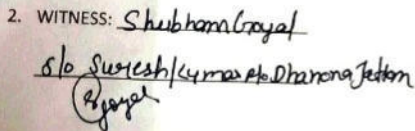 2. WITNESS: Shubham Goyal
S/o Suresh Kumar R/o Dhanana Jattan
Sgoyal